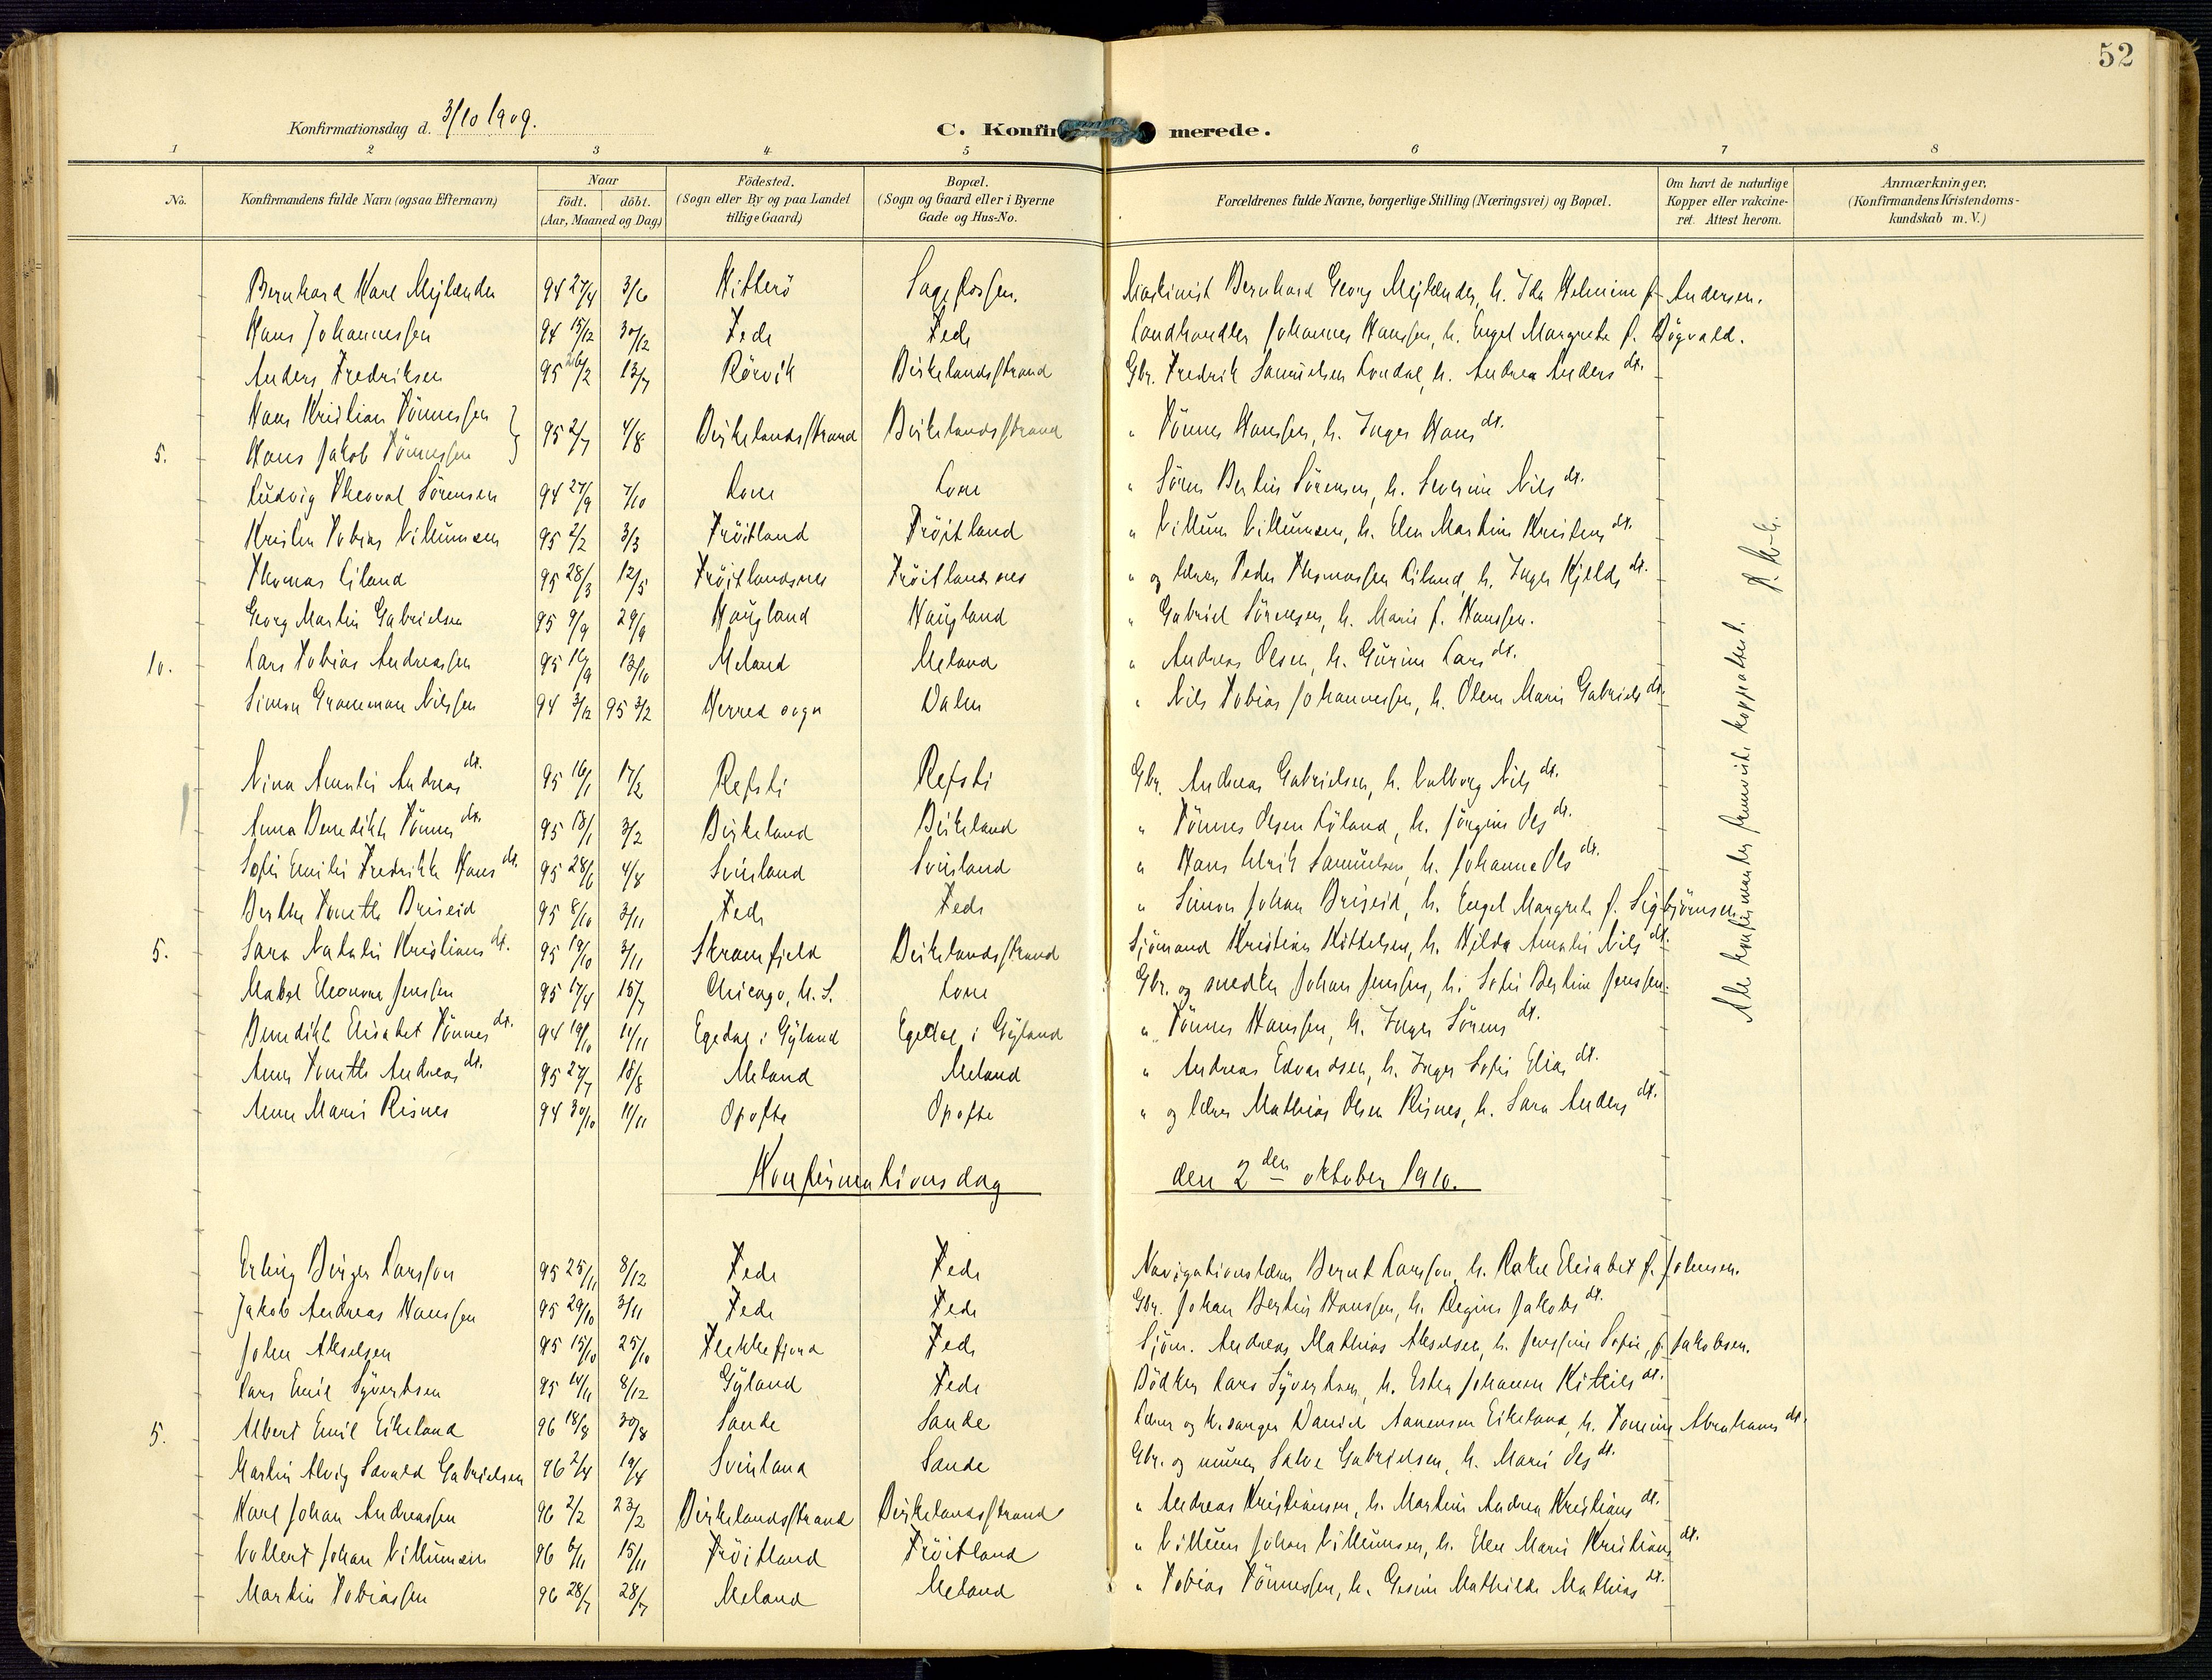 52
Konfirmationsdag d. 3/10 1909.
C. Konfirmerede.
1 2 3 4 5 6 7 8
No. Konfirmandens fulde Navn (ogsaa Efternavn) Naar födt. döbt. (Aar, Maaned og Dag) Födested. (Sogn eller By og paa Landet tillige Gaard) Bopæl. (Sogn og Gaard eller i Byerne Gade og Hus-No. Forældrenes fulde Navne, borgerlige Stilling (Næringsvei) og Bopæl. Om havt de naturlige Kopper eller vakcineret. Attest herom. Anmærkninger. (Konfirmandens Kristendomskundskab m. V.)
Bernhard Karl Mejlænder 94 27/4 3/6 Hitterö Maskinist Bernhard Georg Mejlænder, h. Ida Helmine f. Andersen.
Hans Johannessen 94 15/12 30/12 Fede Fede Landhandler Johannes Hanssen, h. Engel Margrete f. Bögvald.
Anders Fredriksen 95 26/2 13/7 Rörvik Birkelandsstrand Gbr. Fredrik Samuelsen Londal, h. Andrea Anders dt.
Hans Kristian Tönnessen
5. Hans Jakob Tönnessen } 95 2/7 4/8 Birkelandsstrand Birkelandsstrand " Tönnes Hanssen, h. Inger Hans dt.
Ludvig Theoval Sörensen 94 27/9 7/10 Lone Lone " Sören Bertin Sörensen, h. Severine Nils dt.
Kristen Tobias Villumsen 95 2/2 3/3 Fröitland Fröitland " Villum Villumsen, h. Elen Martine Kristens dt.
Thomas Eiland 95 28/3 12/5 Fröitlandsnes Fröitlandsnes " og lærer Peder Thomassen Eiland, h. Inger Kjelds dt.
Georg Martin Gabrielsen 95 9/9 29/9 Haugland Haugland " Gabriel Sörensen, h. Marie f. Hanssen.
10. Lars Tobias Andreassen 95 16/9 13/10 Meland Meland " Andreas Olsen, h. Gurine Lars dt.
Simon Gronemann Nilssen 94 3/12 95 3/2 Herred sogn Dalen " Nils Tobias Johannessen, h. Olene Marie Gabriels dt.
Nina Amalie Andreas dt. 95 16/1 17/2 Refsti Refsti Gbr. Andreas Gabrielsen, h. Valborg Nils dt.
Anna Benedikte Tönnes dt. 95 18/1 3/2 Birkeland Birkeland " Tönnes Olsen Löland, h. Jörgine Ols dt.
Sofie Emilie Fredrikke Hans dt. 95 28/6 4/8 Svinland Svinland " Hans Ulrik Samuelsen, h. Johanne Ols dt.
Berthe Tonette Briseid 95 8/10 3/11 Fede Fede " Simon Johan Briseid, h. Engel Margrete f. Sigbjörnsen.
5. Sara Natalie Kristians dt. 95 19/10 3/11 Skramfjeld Birkelandsstrand Sjömand Kristian Kittelsen, h. Hilda Amalie Nils dt.
Mabel Eleonore Jenssen 95 17/4 15/7 Chicago, U. S. Lone Gbr. og snedker Johan Jenssen, h. Sofie Bertine Jenssen.
Benedikte Elisabet Tönnes dt. 94 19/10 11/11 Egedal i Gyland Egedal i Gyland " Tönnes Hanssen, h. Inger Sörens dt.
Anne Tonette Andreas dt. 95 27/7 18/8 Meland Meland " Andreas Edvardsen, h. Inger Sofie Elias dt.
Anne Marie Risnes 94 30/10 11/11 Opofte Opofte " og lærer Mathias Olsen Risnes, h. Sara Anders dt.
Alle konfirmanter fremviste koppattest.
Konfirmationsdag den 2den oktober 1910.
Erling Birger Larsson 95 25/11 8/12 Fede Fede Navigationslærer Bernt Larsson, h. Rakel Elisabet f. Johnsen.
Jakob Andreas Hanssen 95 29/10 3/11 Fede Fede Gbr. Johan Bertin Hanssen, h. Regine Jakobs dt.
John Akselsen 95 15/10 25/10 Flekkefjord Fede Sjöm. Andreas Mathias Akselsen, h. Jenssine Sofie, f. Jakobsen.
Lars Emil Syvertsen 95 14/11 8/12 Gyland Fede Bödker Lars Syvertsen, h. Ester Johanne Kittils dt.
5. Albert Emil Eikeland 96 18/8 30/8 Sande Sande Lærer og k.sanger Daniel Aanensen Eikeland, h. Tomine Abrahams dt.
Martin Alvig Sævald Gabrielsen 96 2/4 19/4 Svinland Sande Gbr. og murer Salve Gabrielsen, h. Marie Ols dt.
Karl Johan Andreassen 96 2/2 23/2 Birkelandsstrand Birkelandsstrand " Andreas Kristiansen, h. Martine Andrea Kristians dt.
Vollert Johan Villumsen 96 6/11 15/11 Fröitland Fröitland " Villum Johan Villumsen, h. Elen Marie Kristians dt.
Martin Tobiassen 96 28/7 28/7 Meland Meland " Tobias Tönnessen, h. Gesine Mathilde Mathias dt.